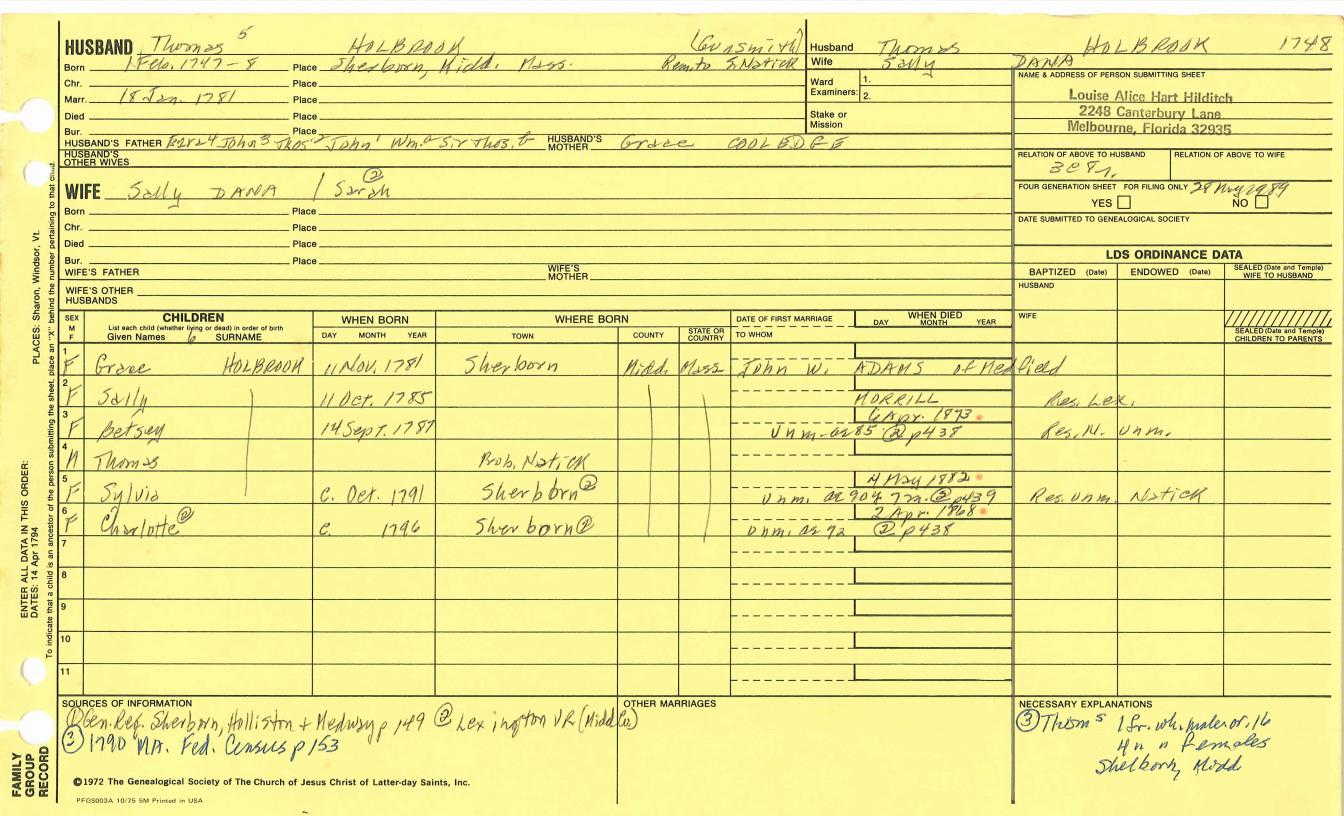 HUSBAND Thomas 5 HOLBROOK (Gunsmith)
Born 1 Feb. 1747-8 Place Sherborn, Midd. Mass. Rem. to S. Natick
Chr. Place
Marr. 18 Jan. 1781 Place
Died Place
Bur. Place
HUSBAND'S FATHER Ezra 4 John 3 Thos 2 John 1 Wm. Sir Thos. HUSBAND'S MOTHER Grace COOLEDGE
HUSBAND'S OTHER WIVES
Husband Thomas HOLBROOK 1748
Wife Sally DANA
Ward Examiners: 1.
2.
Stake or Mission
NAME & ADDRESS OF PERSON SUBMITTING SHEET
Louise Alice Hart Hilditch
2248 Canterbury Lane
Melbourne, Florida 32935
RELATION OF ABOVE TO HUSBAND RELATION OF ABOVE TO WIFE
FOUR GENERATION SHEET FOR FILING ONLY 28 1989
YES NO
DATE SUBMITTED TO GENEALOGICAL SOCIETY
WIFE Sally DANA / Sarah ②
Born Place
Chr. Place
Died Place
Bur. Place
WIFE'S FATHER WIFE'S MOTHER
WIFE'S OTHER HUSBANDS
LDS ORDINANCE DATA
BAPTIZED (Date) ENDOWED (Date) SEALED (Date and Temple) WIFE TO HUSBAND
HUSBAND
WIFE
SEALED (Date and Temple) CHILDREN TO PARENTS
SEX M F CHILDREN WHEN BORN WHERE BORN DATE OF FIRST MARRIAGE WHEN DIED
List each child (whether living or dead) in order of birth
Given Names 6 SURNAME DAY MONTH YEAR TOWN COUNTY STATE OR COUNTRY TO WHOM DAY MONTH YEAR
1 F Grace HOLBROOK 11 Nov. 1781 Sherborn Midd. Mass John W. ADAMS of Medfield
2 F Sally 11 Oct. 1785 MORRILL Res. Lex.
6 Apr. 1873
3 F Betsey 14 Sept. 1787 Unm. ae 85 ② p438 Res. N. unm.
4 M Thomas Prob. Natick
4 May 1882
5 F Sylvia C. Oct. 1791 Sherborn ② Unm. ae 90y 7m. ② p439 Res. unm. Natick
2 Apr. 1868
6 F Charlotte ② C. 1796 Sherborn ② Unm. ae 72 ② p438
7
8
9
10
11
SOURCES OF INFORMATION
① Gen. Reg. Sherborn, Holliston + Medway p 149 ② Lexington VR (Midd Co)
③ 1790 MA. Fed. Census p 153
OTHER MARRIAGES
NECESSARY EXPLANATIONS
③ Thom 5 1 fr. wh. male or. 16
4 " " females
Shelborn, Midd
©1972 The Genealogical Society of The Church of Jesus Christ of Latter-day Saints, Inc.
PFGS003A 10/75 5M Printed in USA
FAMILY GROUP RECORD
ENTER ALL DATA IN THIS ORDER:
DATES: 14 Apr 1794
PLACES: Sharon, Windsor, Vt.
To indicate that a child is an ancestor of the person submitting the sheet, place an "X" behind the number pertaining to that child.